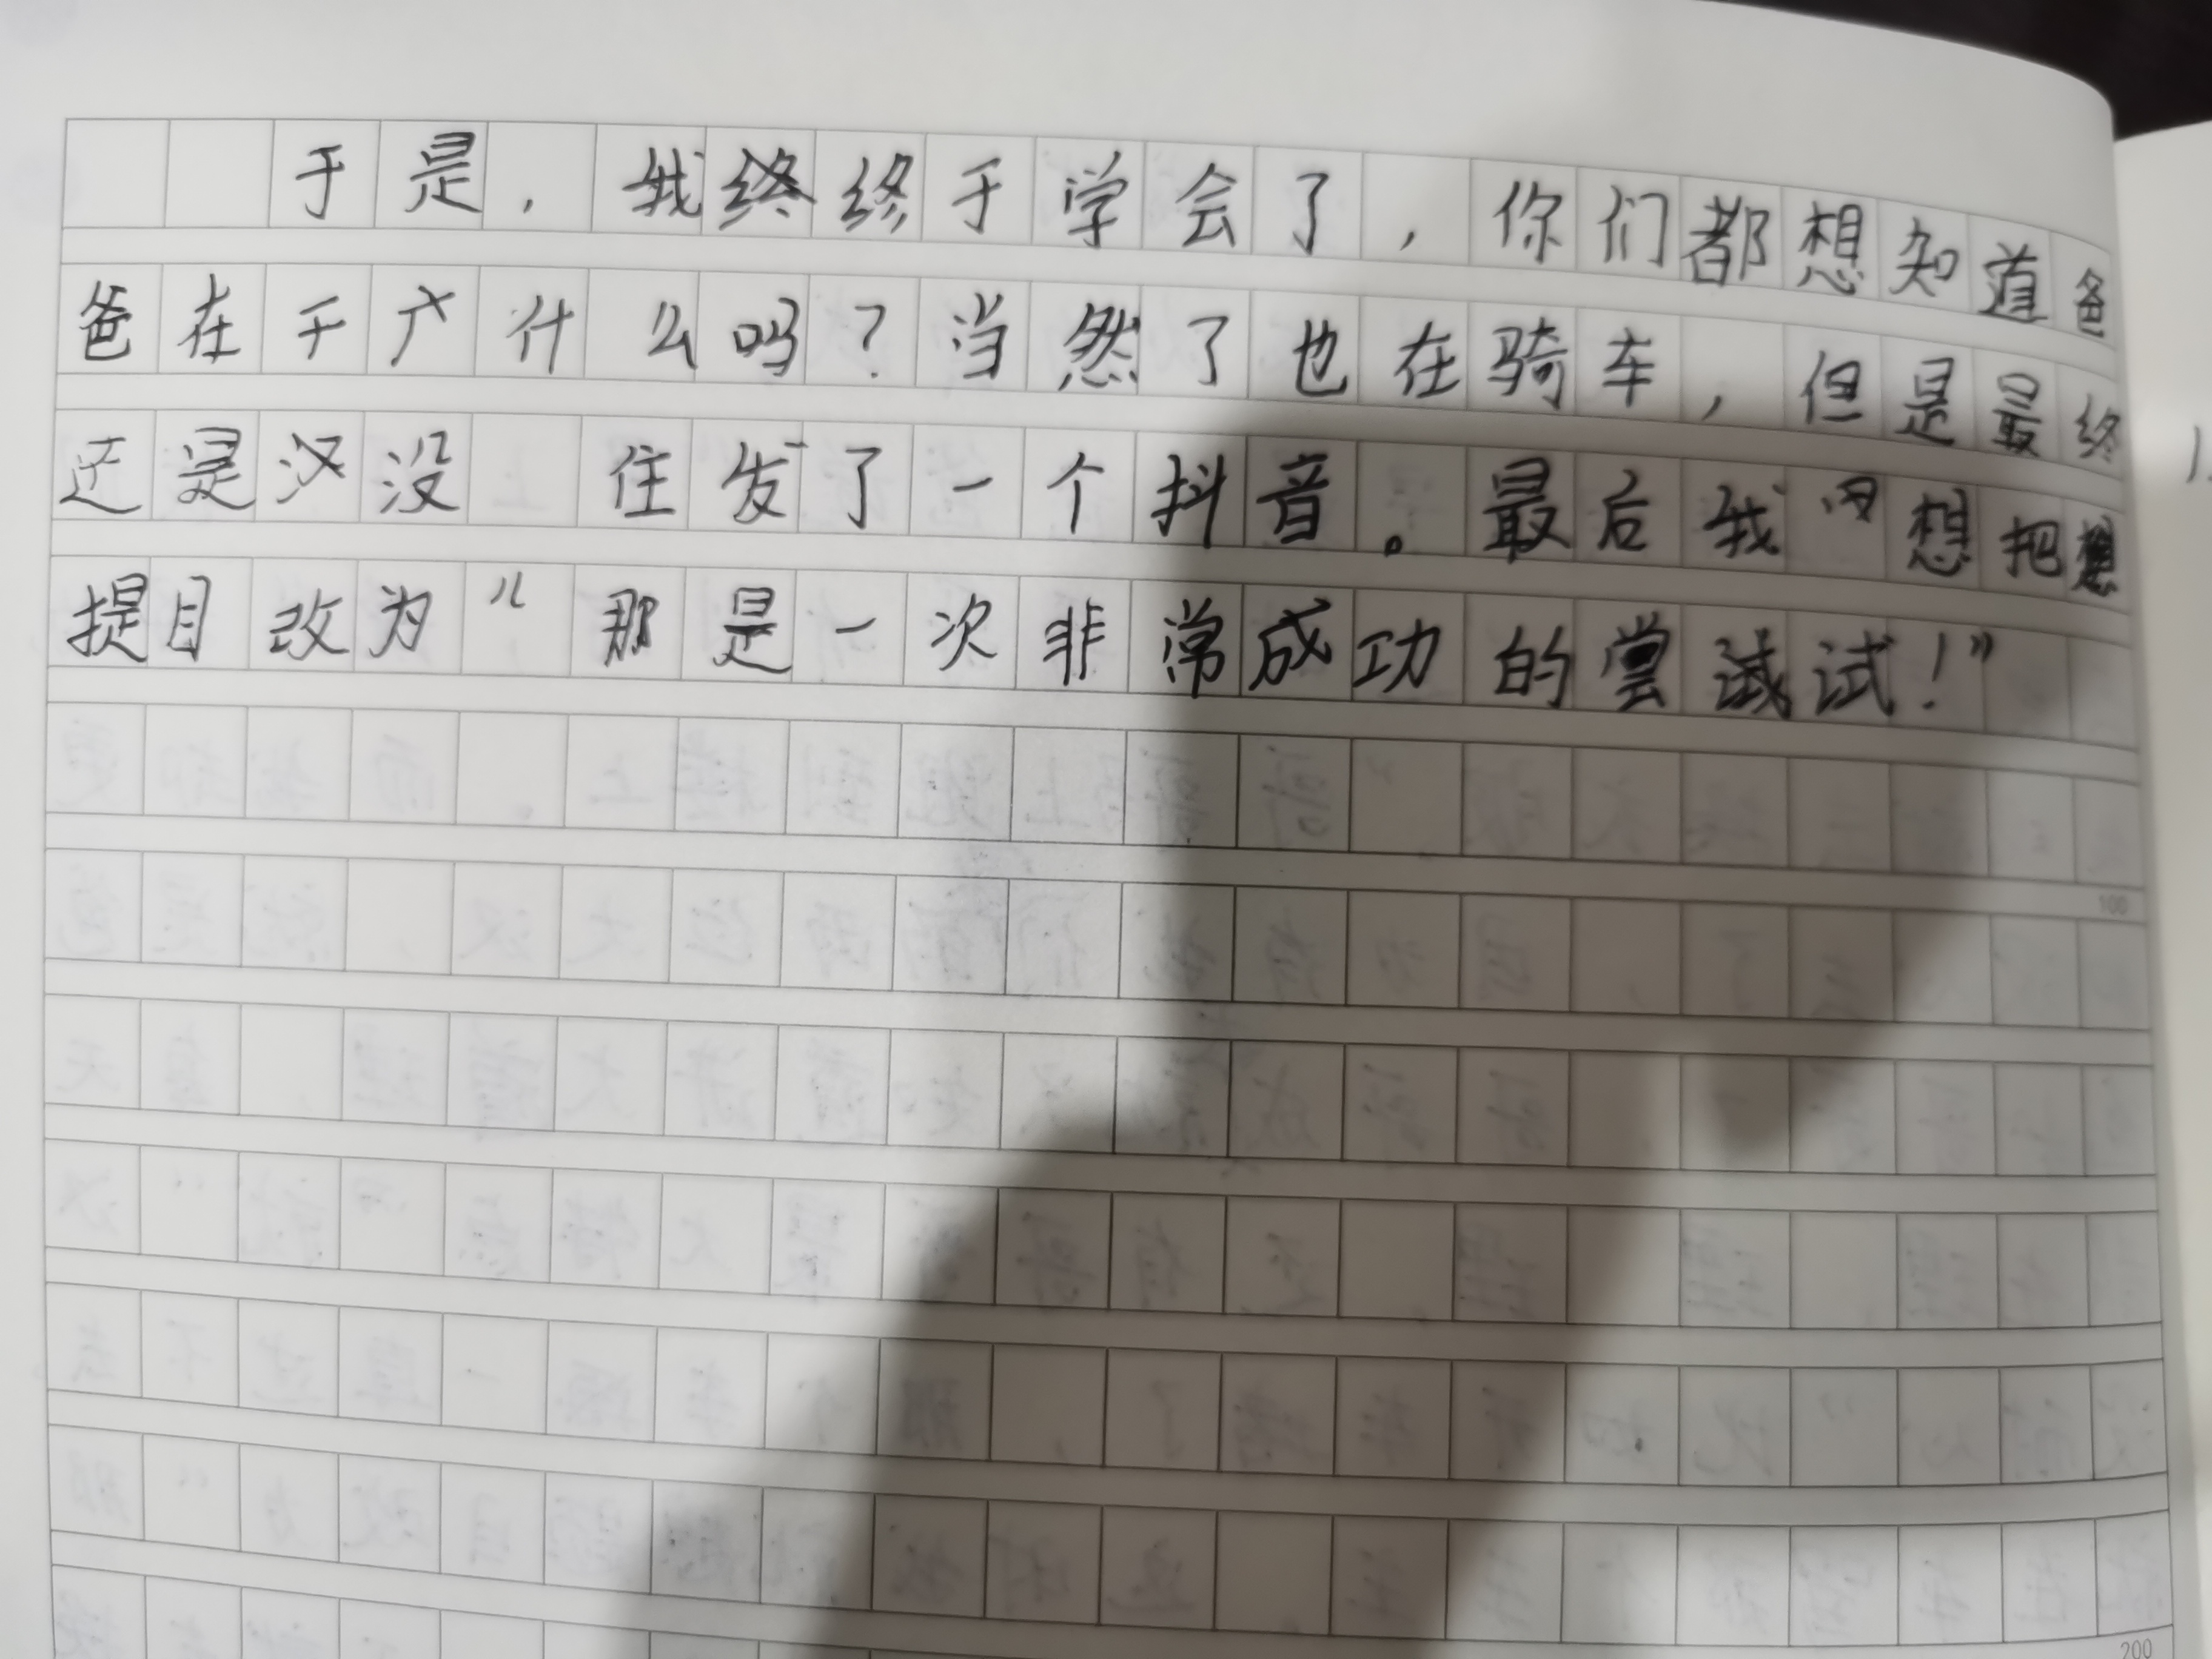 于是，我终于学会了，你们都想知道爸
爸在干什么吗？当然了也在骑车，但是最终
还是没 住发了一个抖音。最后我 想把
提目改为“那是一次非常成功的尝试！”